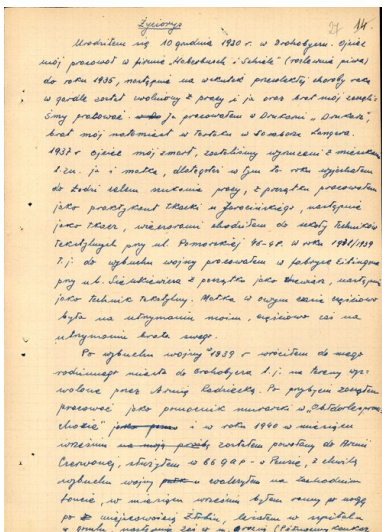 27 14.
Życiorys
Urodziłem się 10 grudnia 1920 r. w Drohobyczu. Ojciec
mój pracował w firmie Haberbusch i Schiele" (rozlewnia piwa)
do roku 1935, następnie na skutek przewlekłej choroby raka
w gardle został zwolniony z pracy i ja oraz brat mój zaczęli
śmy pracować. Ja pracowałem w Drukarni „
brat mój natomiast w Tartaku w
1937 r ojciec mój zmarł, zostaliśmy wyrzuceni z mieszkania
t.zn. ja i matka, dlatego też w tym to roku wyjechałem
do Łodzi celem szukania pracy, z początku pracowałem
jako praktykant tkacki u Jarocińskiego, następnie
jako tkacz, wieczorami chodziłem do szkoły Techników
Tekstylnych przy ul. Pomorskiej 46-48. W roku 1938/1939
t.j. do wybuchu wojny pracowałem w fabryce Eitingona
przy ul. Sienkiewicza z początku jako tkacz, następnie
jako technik tekstylny. Matka w owym czasie częściowo
była na utrzymaniu moim, częściowo zaś na
utrzymaniu brata mego.
Po wybuchu wojny 1939 r wróciłem do mego
rodzinnego miasta do Drohobycza t.j. na tereny wyz-
wolone przez Armię Radziecką. Po przybyciu zacząłem
pracować jako pomocnik murarski w
i w roku 1940 w miesiącu
wrześniu zostałem powołany do Armii
Czerwonej, służyłem w 669 a p - w Penzie, z chwilą
wybuchu wojny walczyłem na zachodnim
froncie, w miesiącu wrześniu byłem ranny w nogę
pod miejscowością leżałem w szpitalu
następnie zaś w m. Grozny (Północny Kaukaz